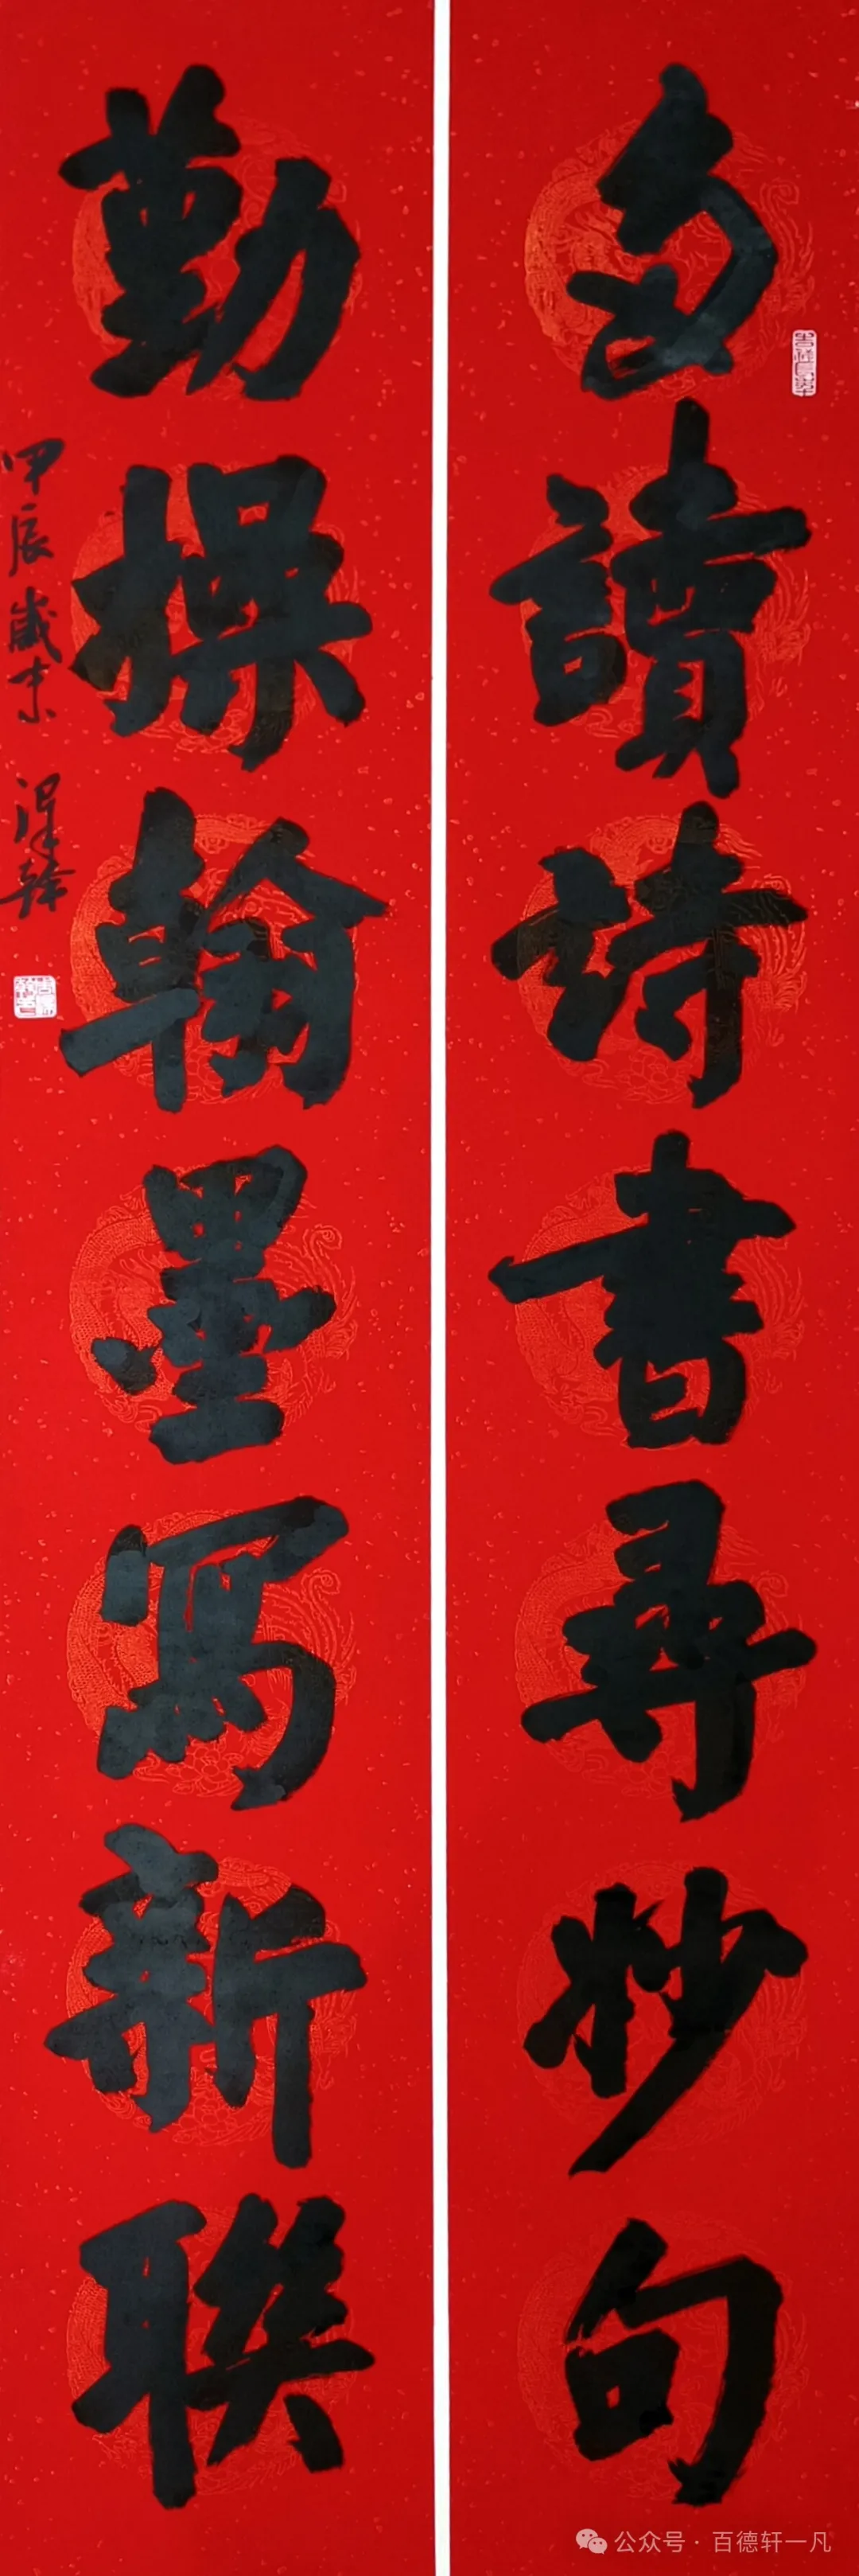 多讀詩書尋妙句
勤操翰墨寫新聯
甲辰歲末
公众号 · 百德轩一凡